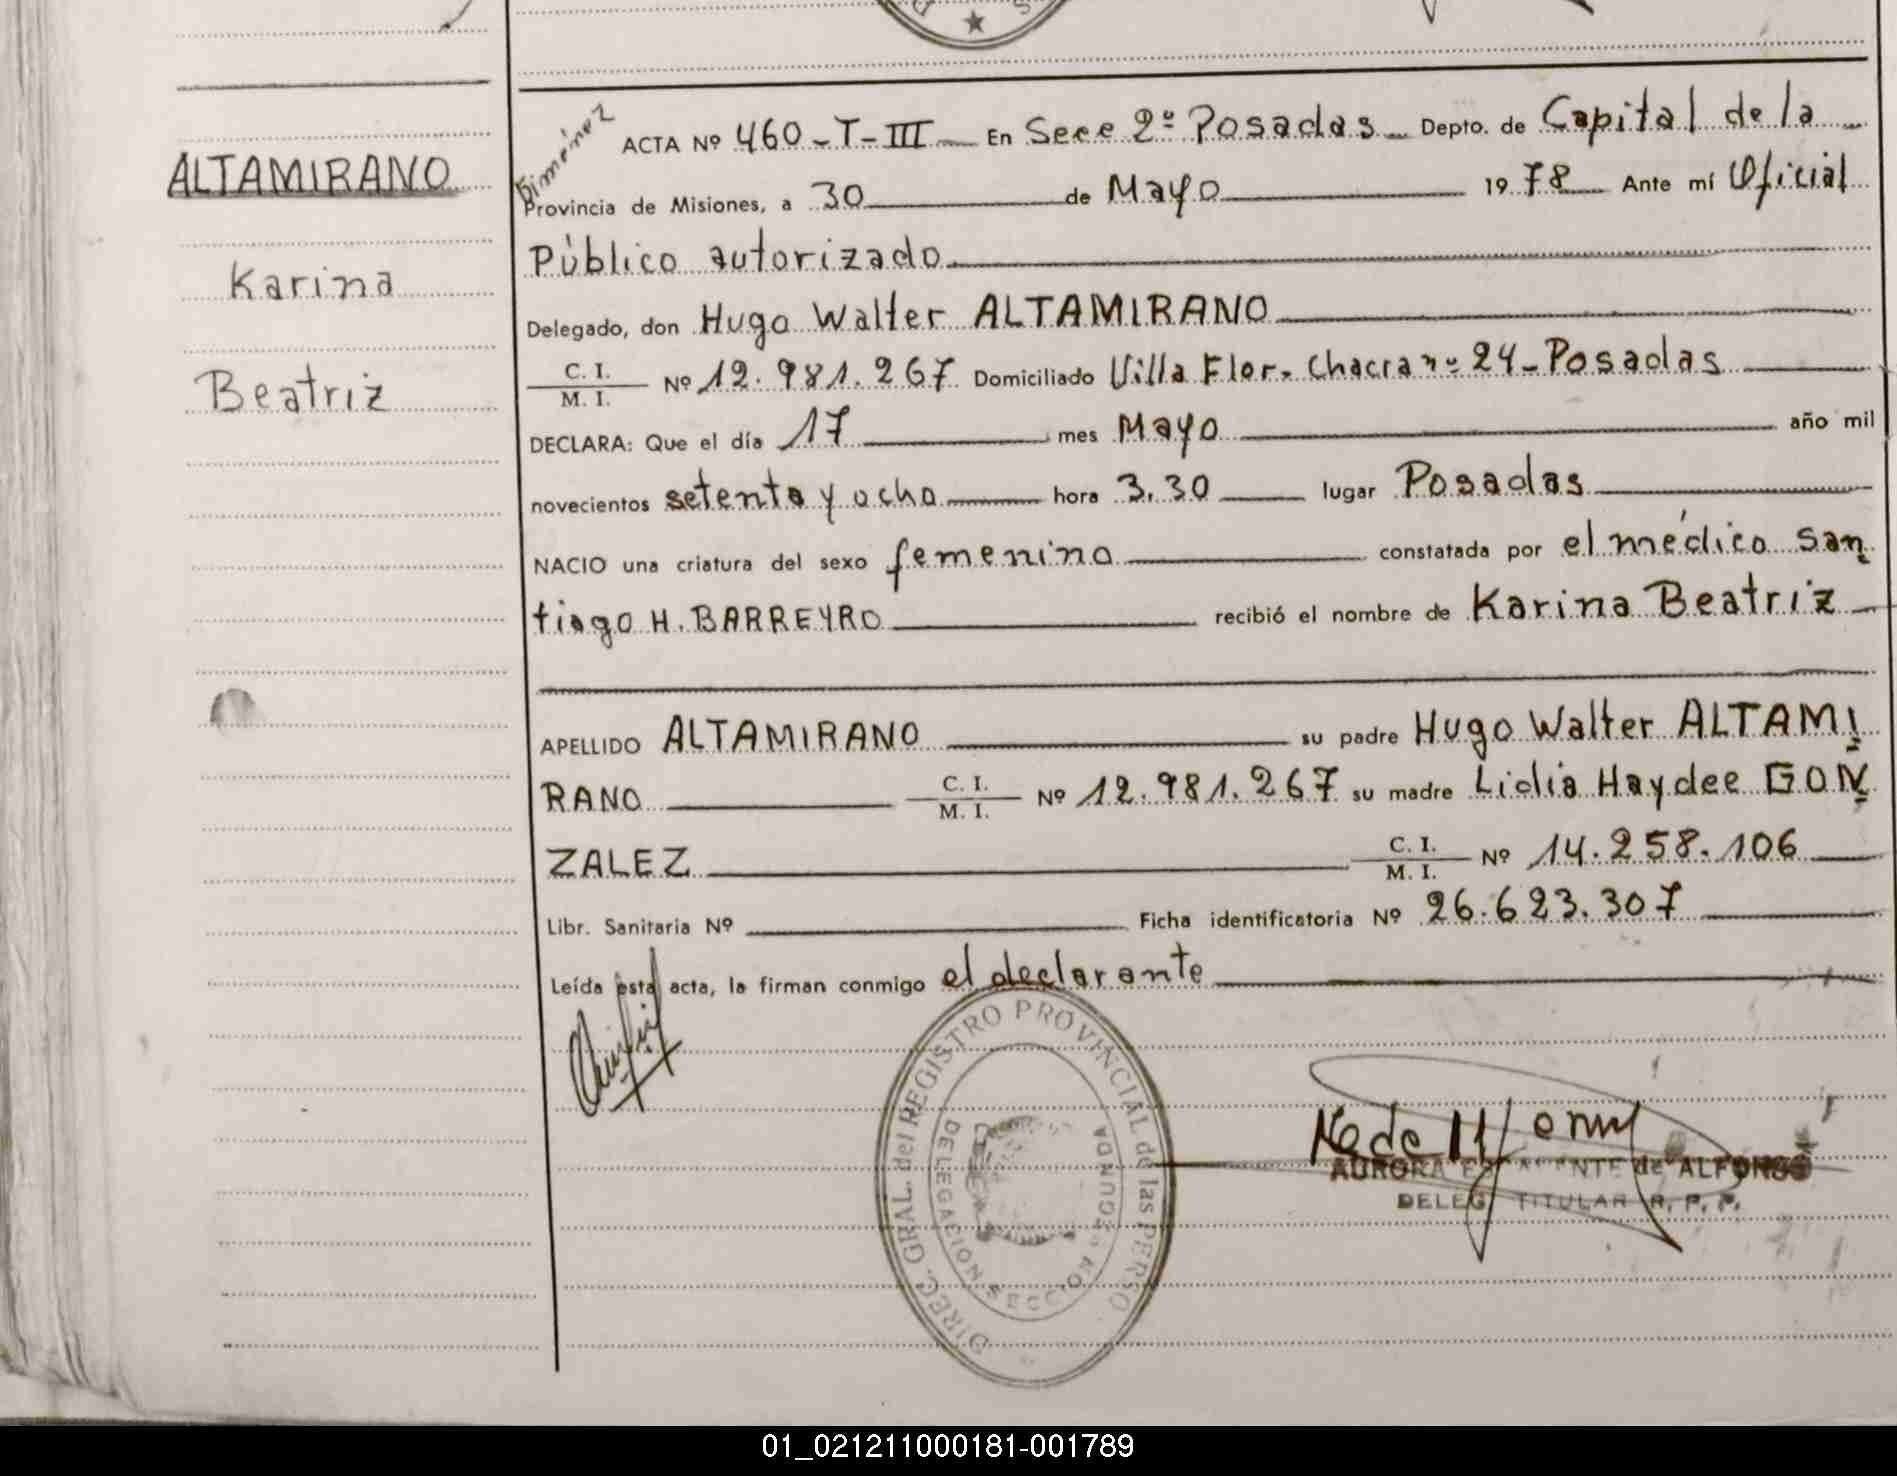 ALTAMIRANO
Karina
Beatriz
Giménez
ACTA Nº 460-T-III En Sece 2º Posadas Depto. de Capital de la
Provincia de Misiones, a 30 de Mayo 1978 Ante mí Oficial
Público autorizado
Delegado, don Hugo Walter ALTAMIRANO
C. I.
M. I. Nº 12.981.267 Domiciliado Villa Flor. Chacra nº 24-Posadas
DECLARA: Que el día 17 mes Mayo año mil
novecientos setenta y ocho hora 3.30 lugar Posadas
NACIO una criatura del sexo femenino constatada por el médico San
tiago H. BARREYRO recibió el nombre de Karina Beatriz
APELLIDO ALTAMIRANO su padre Hugo Walter ALTAMI
RANO C. I.
M. I. Nº 12.981.267 su madre Lidia Haydee GON
ZALEZ C. I.
M. I. Nº 14.258.106
Libr. Sanitaria Nº Ficha identificatoria Nº 26.623.307
Leída esta acta, la firman conmigo el declarante
DIREC. GRAL. del REGISTRO PROVINCIAL de las PERSO
DELEGACION SECCION SEGUNDA
AURORA de ALFONSO
DELEG TITULAR R. P. P.
01_021211000181-001789